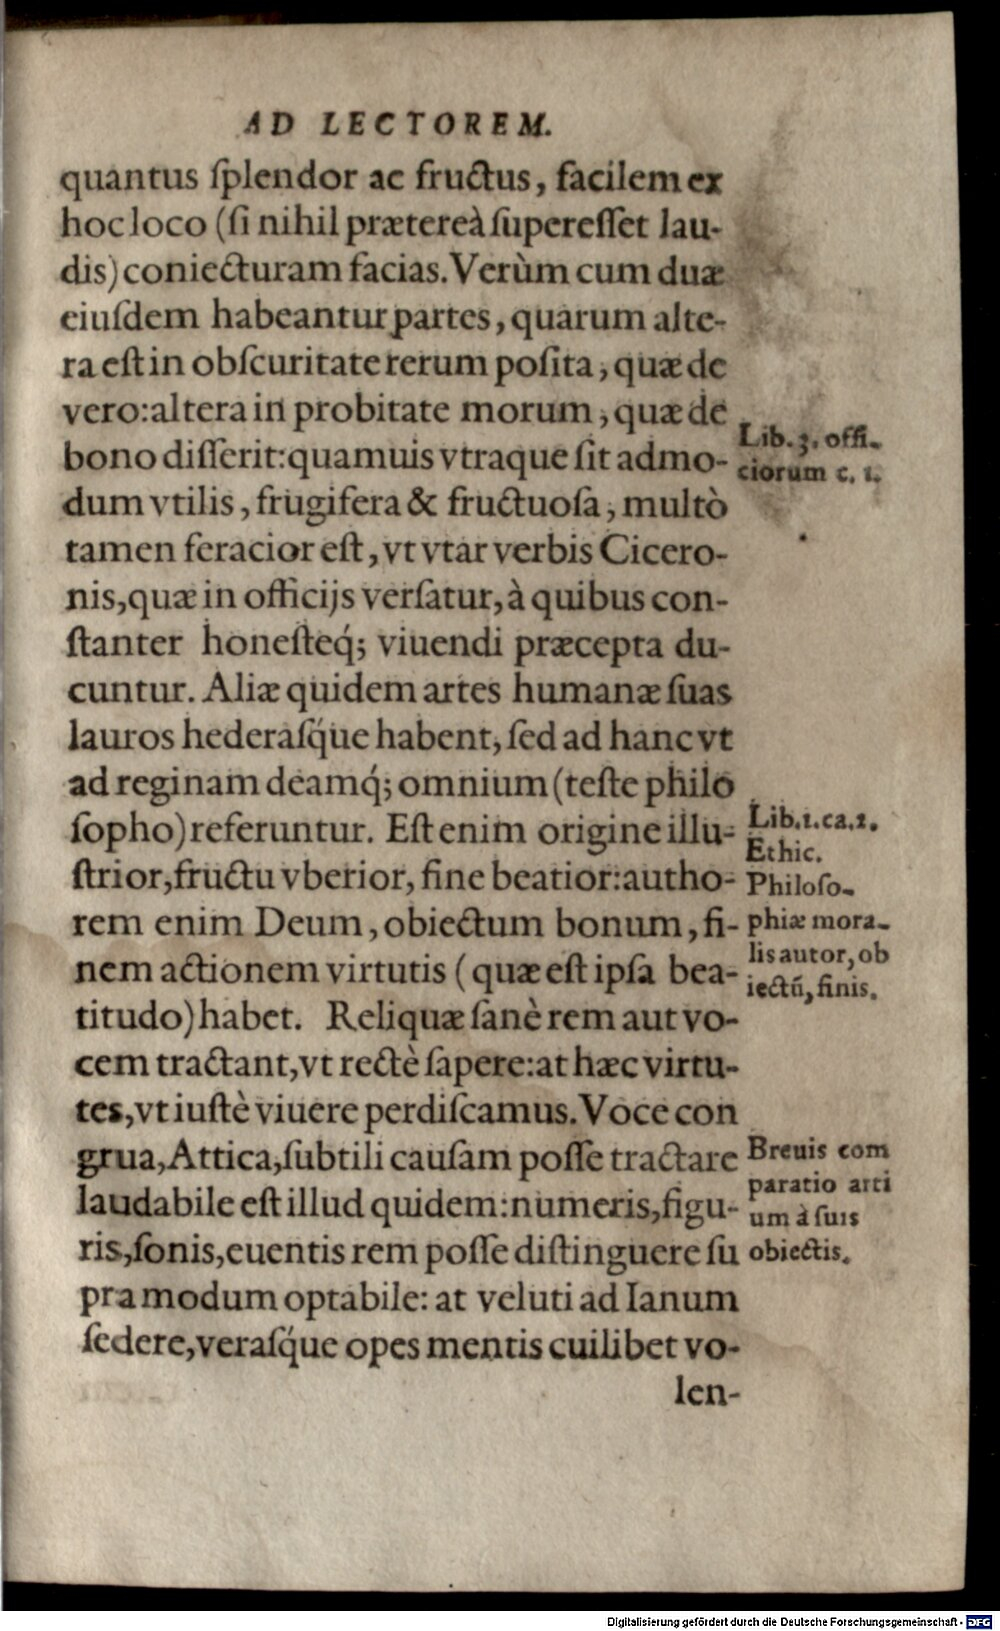 AD LECTOREM.
quantus ſplendor ac fructus, facilem ex
hoc loco (ſi nihil prætereà ſupereſſet lau-
dis) coniecturam facias. Verùm cum duæ
eiuſdem habeantur partes, quarum alte-
ra eſt in obſcuritate rerum poſita, quæ de
vero: altera in probitate morum, quæ de
bono diſſerit: quamuis vtraque ſit admo-
dum vtilis, frugifera & fructuoſa, multò
tamen feracior eſt, vt vtar verbis Cicero-
nis, quæ in officijs verſatur, à quibus con-
ſtanter honeſteq́; viuendi præcepta du-
cuntur. Aliæ quidem artes humanæ ſuas
lauros hederaſq́ue habent, ſed ad hanc vt
ad reginam deamq́; omnium (teſte philo
ſopho) referuntur. Eſt enim origine illu-
ſtrior, fructu vberior, fine beatior: autho-
rem enim Deum, obiectum bonum, fi-
nem actionem virtutis (quæ eſt ipſa bea-
titudo) habet. Reliquæ ſanè rem aut vo-
cem tractant, vt rectè ſapere: at hæc virtu-
tes, vt iuſtè viuere perdiſcamus. Voce con
grua, Attica, ſubtili cauſam poſſe tractare
laudabile eſt illud quidem: numeris, figu-
ris, ſonis, euentis rem poſſe diſtinguere ſu
pra modum optabile: at veluti ad Ianum
ſedere, veraſq́ue opes mentis cuilibet vo-
len-
Lib. 3. offi-
ciorum c. 1.
Lib. 1. ca. 1.
Ethic.
Philoſo-
phiæ mora-
lis autor, ob
iectũ, finis.
Breuis com
paratio arti
um à ſuis
obiectis.
Digitalisierung gefördert durch die Deutsche Forschungsgemeinschaft - DFG